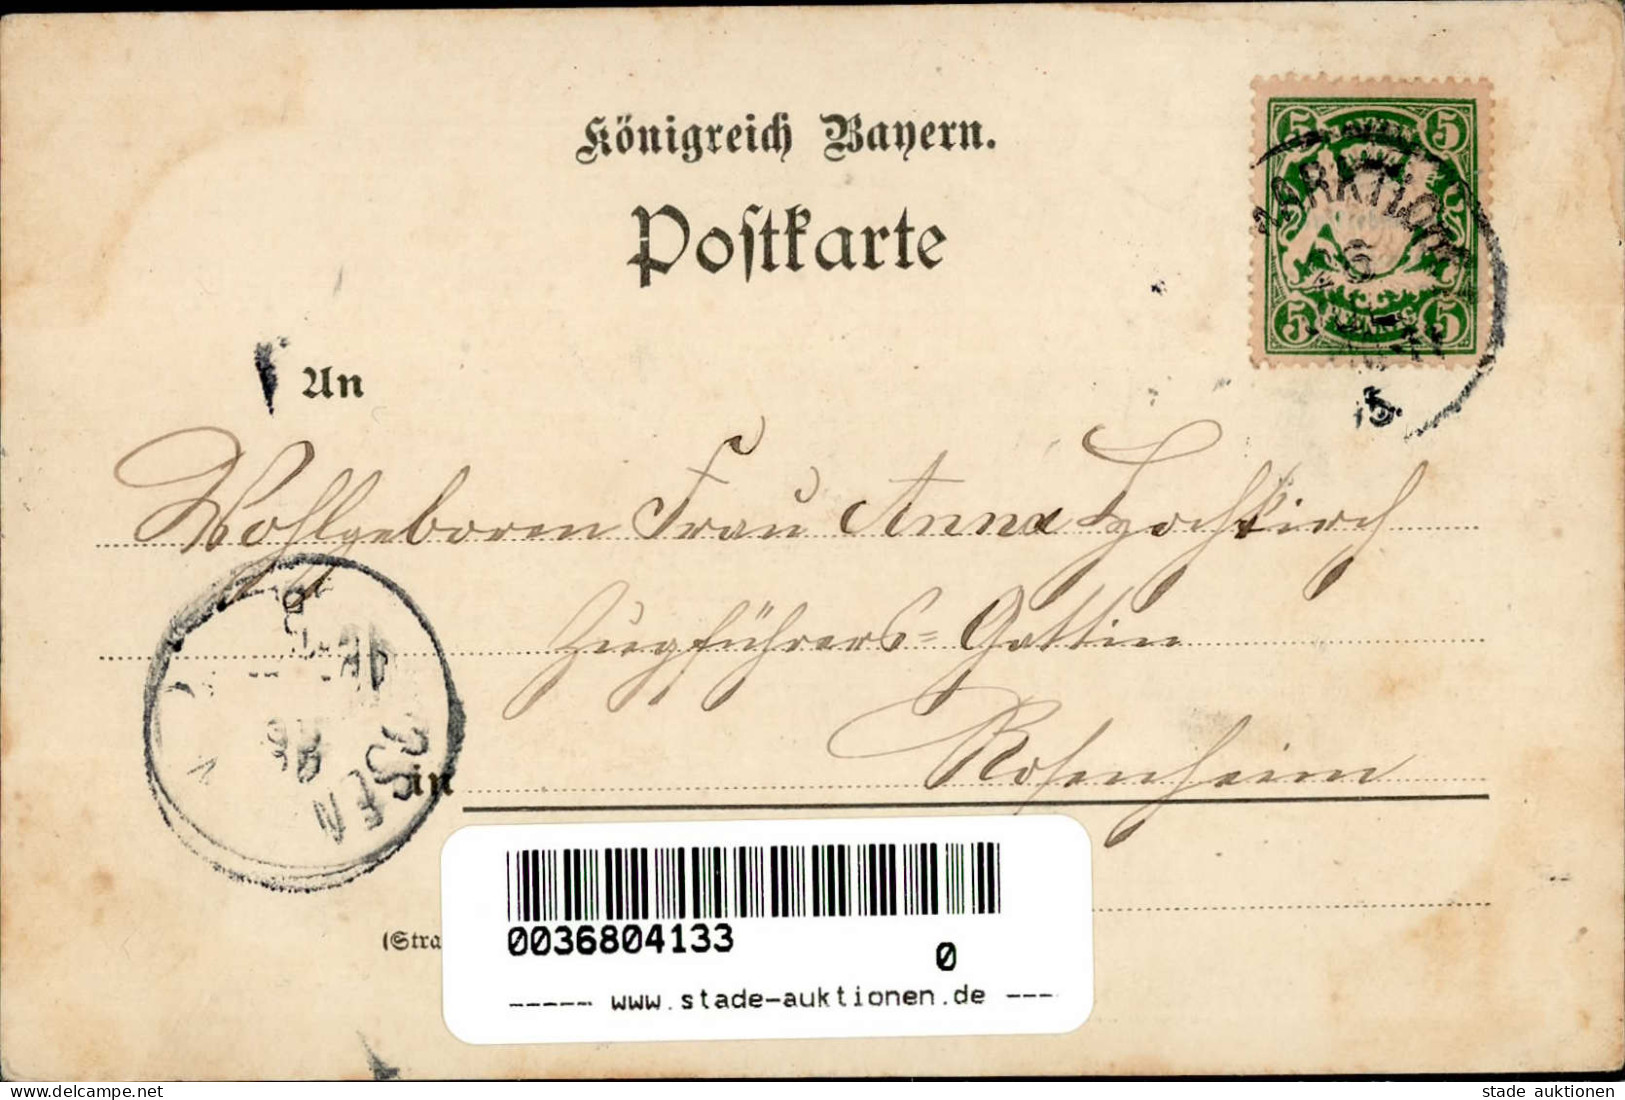 Königreich Bayern.
Postkarte
5 5
5 PFENNIG 5
An
Wohlgeboren Frau Anna
Zugführers= Gattin
in Rosenheim
(Stra
0036804133
0
----- www.stade-auktionen.de ---
www.delcampe.net
stade auktionen